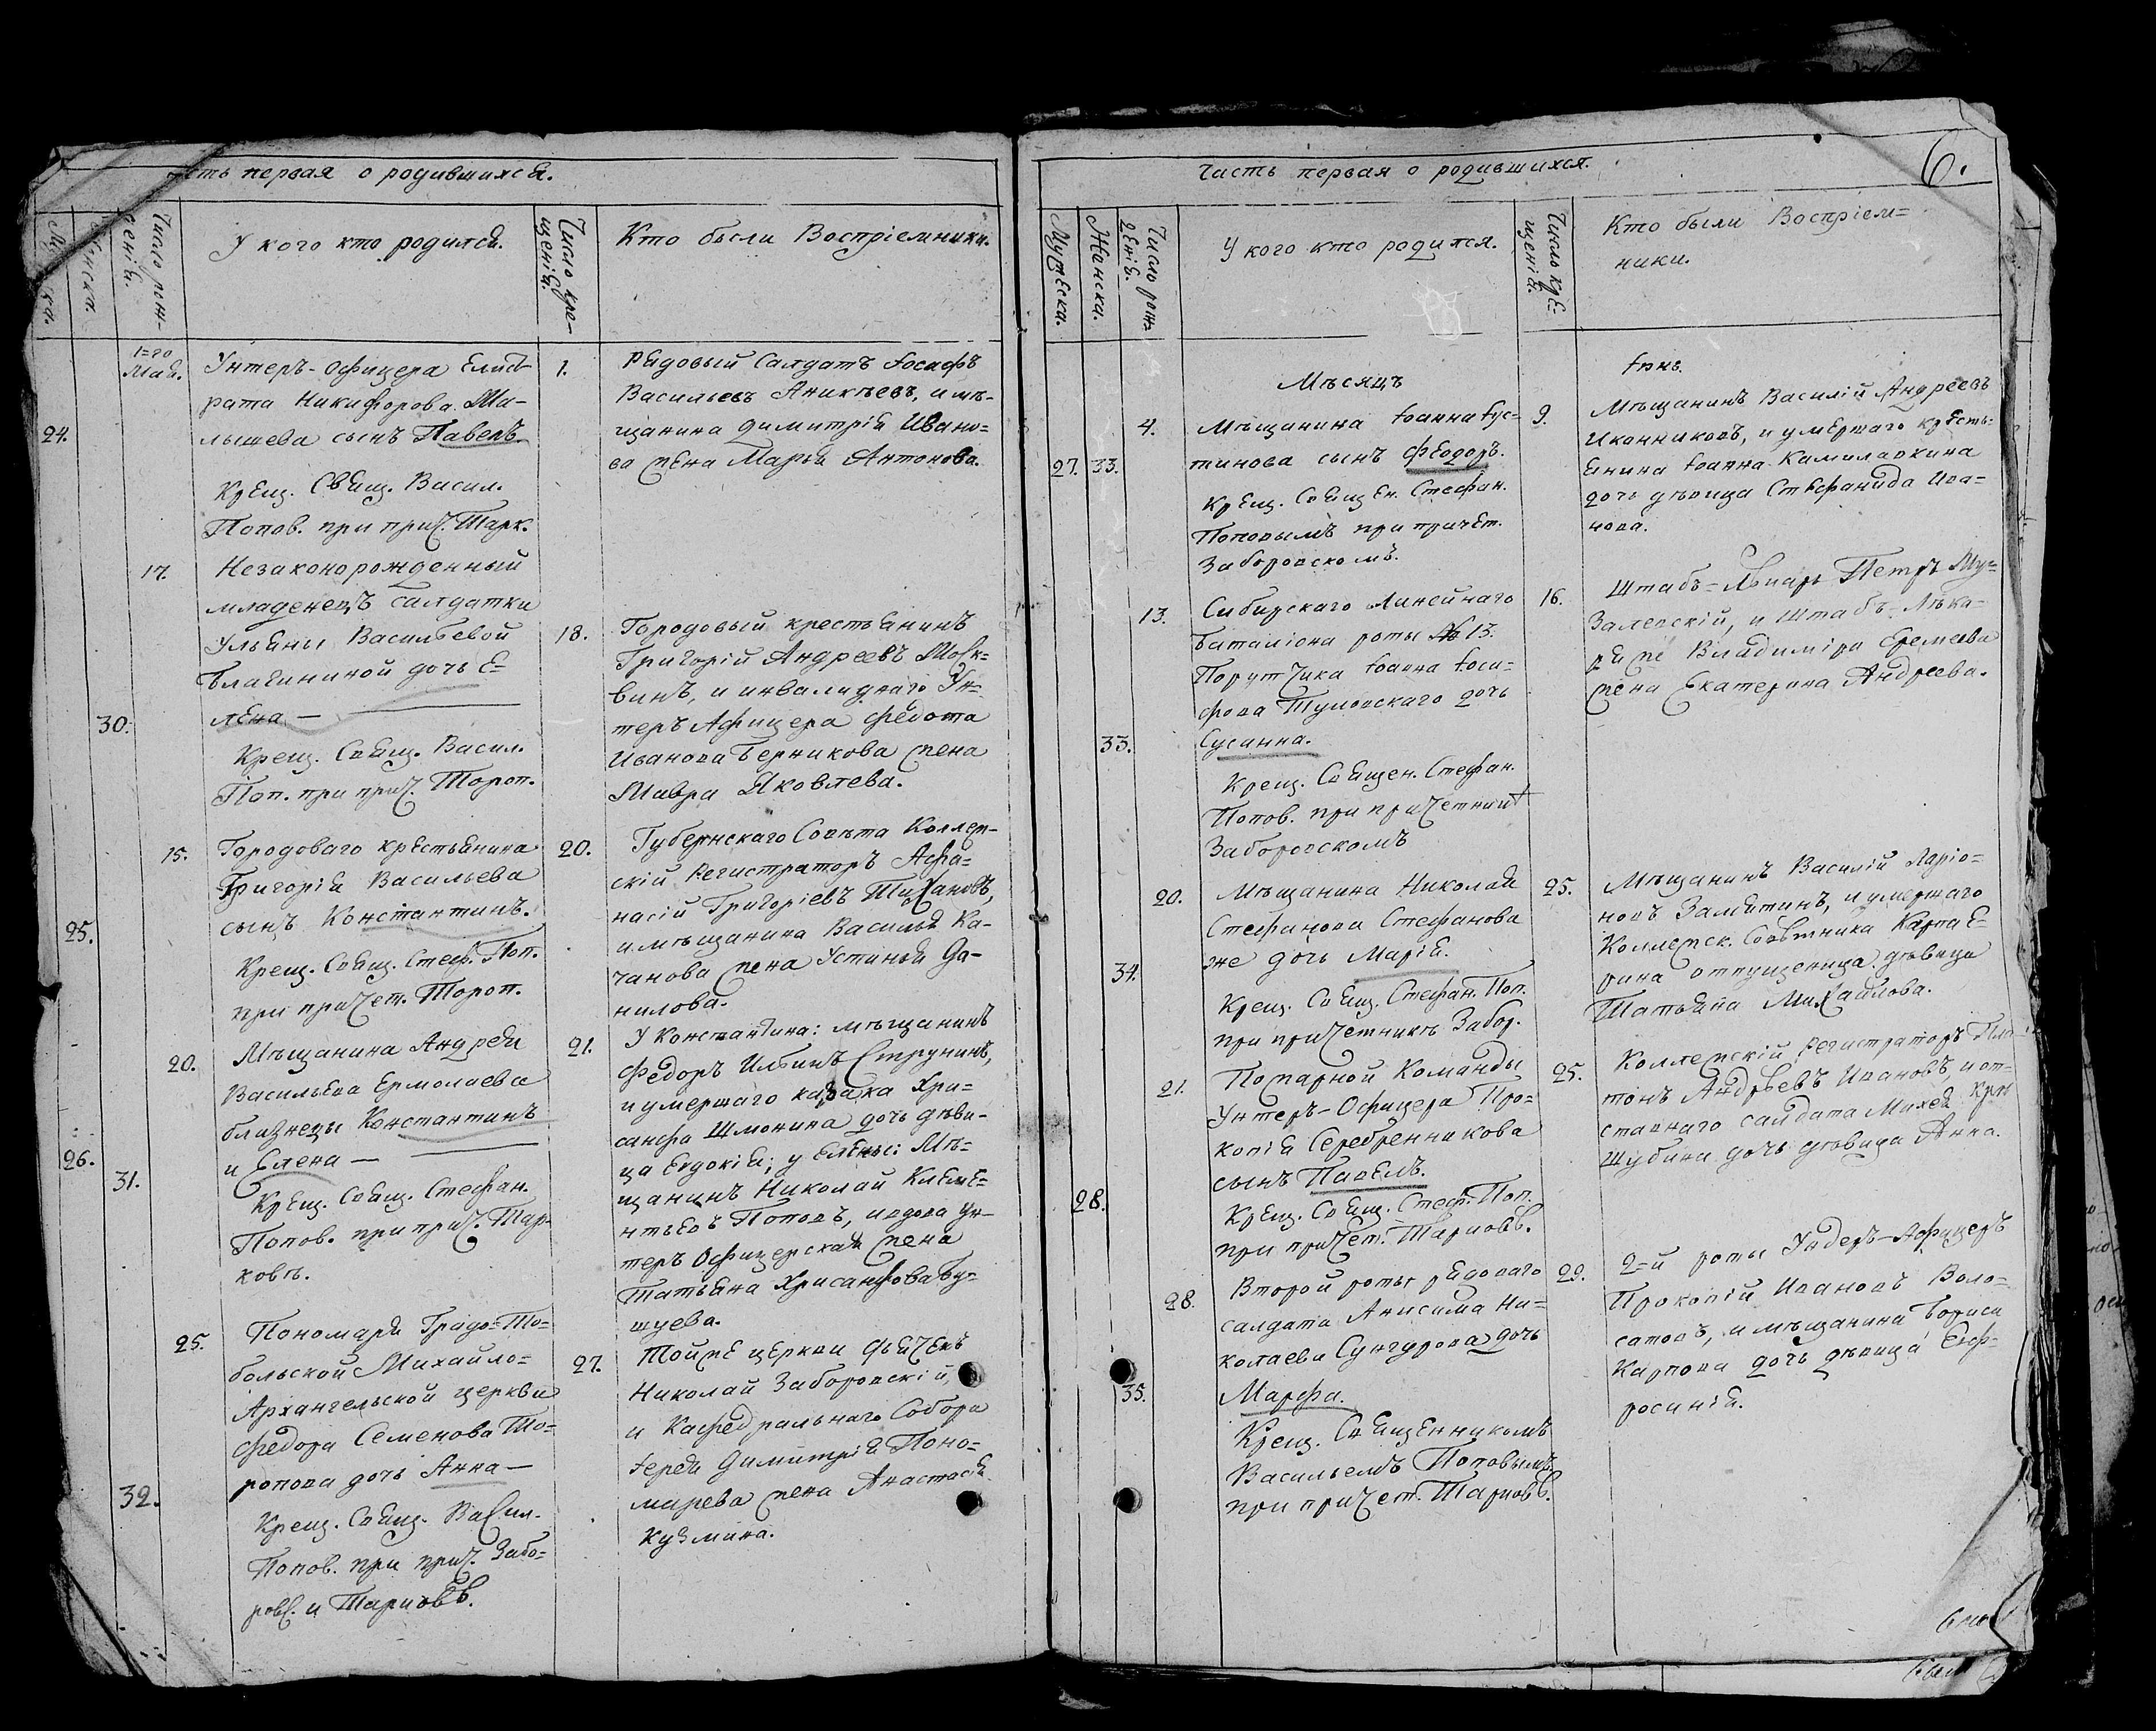 сть первая о родившихся.
Мужеска.
Женска.
Число рож-
денія.
У кого кто родился.
Число кре-
щенія.
Кто были Воспріемники.
Мая.
24.
Унтеръ-офицера Елист-
рата Никифорова Ма-
лышева сынъ Павелъ.
Крещ. Свящ. Васил.
Попов. при прич. Тарк.
1.
Рядовый Салдатъ Іосифъ
Васильевъ Аникѣевъ, и мѣ-
щанина Димитрія Ивано-
ва жена Марья Антонова.
17.
30.
Незаконорожденный
младенецъ Салдатки
Ульяны Васильевой
Благининой дочь Е-
лена —
Крещ. Свящ. Васил.
Поп. при прич. Тороп.
18.
Городовый крестьянинъ
Григорій Андреевъ Моск-
винъ, и инвалиднаго Ун-
теръ Афицера Федота
Иванова Берникова жена
Мавра Яковлева.
15.
25.
Городоваго крестьянина
Григорія Васильева
сынъ Константинъ.
Крещ. Свящ. Стеф. Поп.
при причет. Тороп.
20.
Губернскаго Совѣта Коллеж-
скій Регистраторъ Афа-
насій Григоріевъ Тихановъ,
и мѣщанина Василья Ка-
чанова жена Устинья Да-
нилова.
20.
26.
31.
Мѣщанина Андрея
Васильева Ермолаева
близнецы Константинъ
и Елена —
Крещ. Свящ. Стефан.
Попов. при прич. Тар-
ковѣ.
21.
У Константина: мѣщанинъ
Федоръ Ильинъ Струнинъ,
и умершаго казака Хри-
санфа Шмонина дочь дѣви-
ца Евдокія; у Елены: Мѣ-
щанинъ Николай Клеме-
нтьевъ Поповъ, и вдова Ун-
теръ Офицерская жена
Татьяна Хрисанфова Бу-
шуева.
25.
32.
Пономаря Градо-То-
больской Михайло-
Архангельской церкви
Федора Семенова То-
ропова дочь Анна —
Крещ. Свящ. Васил.
Попов. при прич. Забо-
ровс. и Тарковѣ.
27.
Тойже церкви дьячекъ
Николай Заборовскій,
и Кафедральнаго Собора
Іерея Димитрія Поно-
марева жена Анастасія
Кузмина.
Часть первая о родившихся.
6.
Мужеска.
Женска.
Число рож-
денія.
У кого кто родился.
Число кре-
щенія.
Кто были Воспріем-
ники.
Мѣсяцъ
Іюнь.
4.
27. 33.
Мѣщанина Іоанна Іус-
тинова сынъ Феодоръ.
Крещ. Священ. Стефан.
Поповымъ при причет.
Заборовскомъ.
9.
Мѣщанинъ Василій Андреевъ
Иконниковъ, и умершаго кресть-
янина Іоанна Камилавкина
дочь дѣвица Стефанида Ива-
нова.
13.
33.
Сибирскаго Линейнаго
Баталіона роты № 13.
Порутчика Іоанна Іоси-
фова Тумовскаго дочь
Сусанна.
Крещ. Священ. Стефан.
Попов. при причетник
Заборовскомъ
16.
Штабъ-Лѣкарь Петръ Му-
Залевскій, и Штабъ-Лѣка-
ря же Владиміра Еремеева
жена Екатерина Андреева.
20.
34.
Мѣщанина Николая
Стефанова Стефанова
же дочь Марія.
Крещ. Свящ. Стефан. Поп.
при причетникѣ Забор.
25.
Мѣщанинъ Василій Ларіо-
новъ Замятинъ, и умершаго
Коллежск. Совѣтника Карта Е-
рина отпущеница дѣвица
Татьяна Михайлова.
21.
28.
Пожарной Команды
Унтеръ-Офицера Про-
копія Серебренникова
сынъ Павелъ.
Крещ. Свящ. Стеф. Поп.
при причет. Тарковѣ.
25.
Коллежскій Регистраторъ Пла-
тонъ Андрѣевъ Ивановъ, и от-
ставнаго салдата Михея
Шубина дочь дѣвица Анна.
28.
35.
Второй роты рядоваго
салдата Анисима Ни-
колаева Сунгурова дочь
Марфа.
Крещ. Священникомъ
Васильемъ Поповымъ
при причет. Тарковѣ.
29.
2-й роты Ундеръ-Афицеръ
Прокопій Ивановъ Воло-
сатовъ, и мѣщанина Бориса
Карпова дочь дѣвица Евф-
росинія.